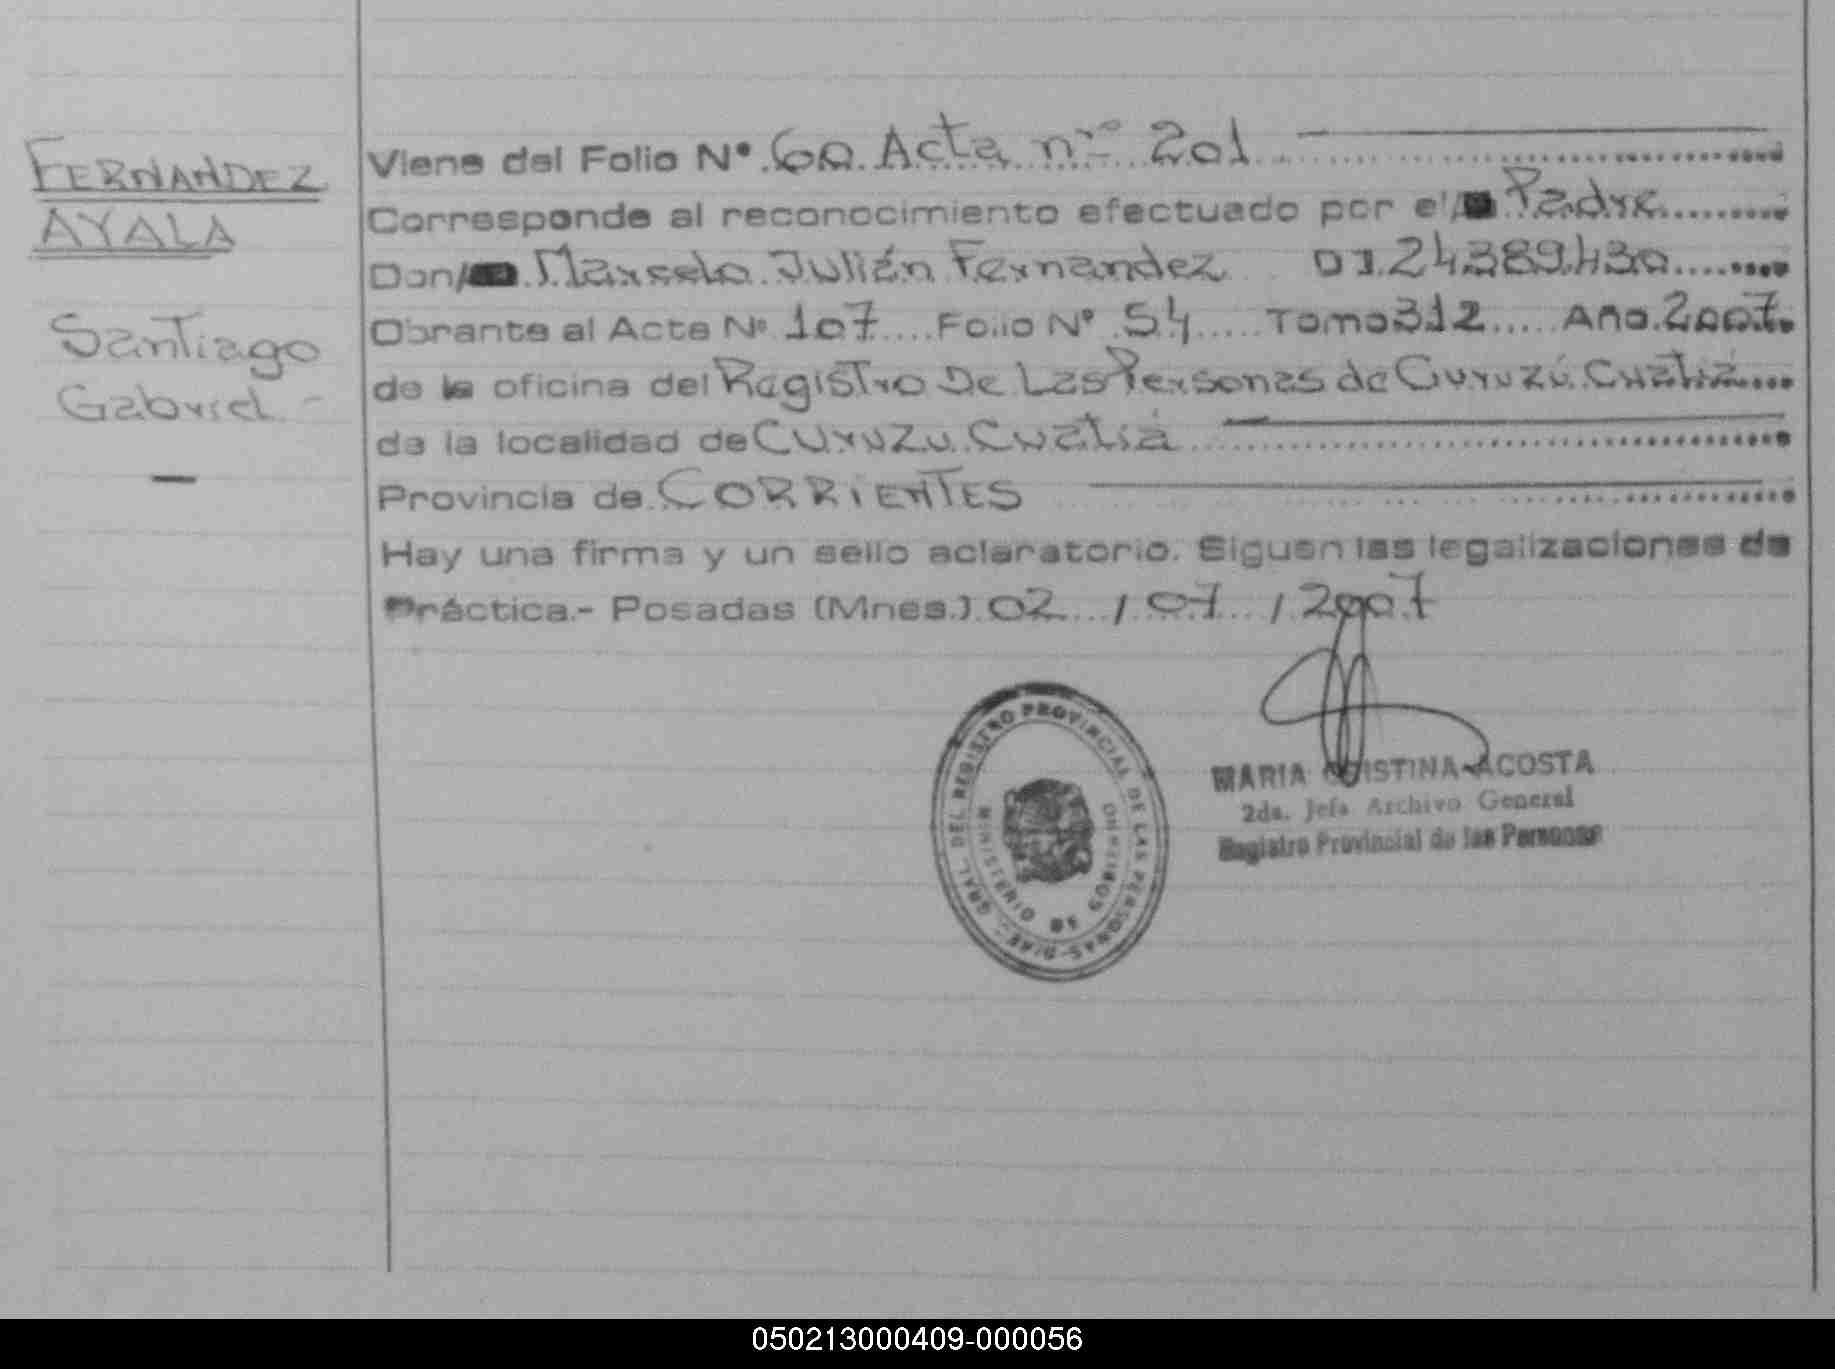 FERNANDEZ
AYALA
Santiago
Gabriel -
Viene del Folio N° 60 Acta n° 201
Corresponde al reconocimiento efectuado por el/ Padre
Don/ Marcelo Julián Fernandez DI.24.389.430
Obrante al Acta N° 107 Folio N° 54 Tomo 312 Año 2007
de la oficina del Registro De Las Personas de Curuzú Cuatiá
de la localidad de Curuzu Cuatiá
Provincia de CORRIENTES
Hay una firma y un sello aclaratorio. Siguen las legalizaciones de
Práctica.- Posadas (Mnes.) 02 / 07 / 2007
GRAL. DEL REGISTRO PROVINCIAL DE LAS PERSONAS
MINISTERIO DE GOBIERNO
MARIA CRISTINA ACOSTA
2da. Jefa Archivo General
Registro Provincial de las Personas
050213000409-000056